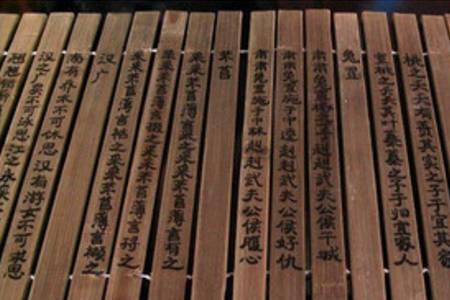 桃之夭夭有蕡其实之子于宜其家
室桃之夭夭其叶蓁蓁之子于归宜家人
兔罝
肃肃兔罝椓之丁丁赳赳武夫公侯干城
肃肃兔罝施于中逵赳赳武夫公侯好仇
肃肃兔罝施于中林赳赳武夫公侯腹心
芣苢
采采芣苢薄言采之采采芣苢薄言有之
采采芣苢薄言掇之采采芣苢薄言捋之
采采芣苢薄言袺之采采芣苢薄言襭之
汉广
南有乔木不可休思汉有游女不可求思
汉之广矣不可泳思江之永矣
翘翘错薪